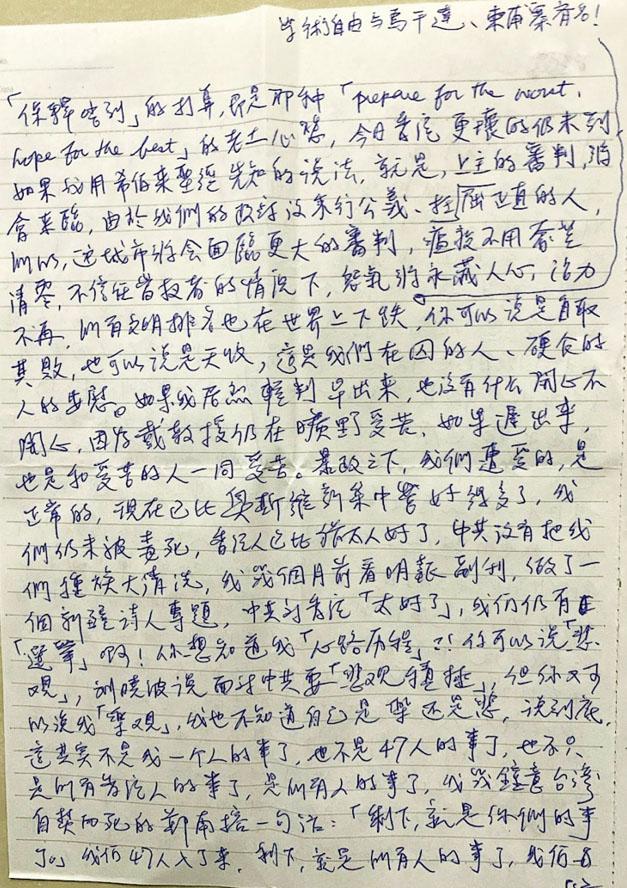 学術自由与烏干達、柬甫寨齊名！
「保釋啱到」的打算，即是那种「prepare for the worst,
hope for the best」的老土心態，今日香港更壞的仍未到，
如果我用希伯來聖經先知的说法，就是，上主的審判，將
會來臨，由於我們的政府没秉行公義、枉屈正直的人，
所以，这城市將会面臨更大的審判，瘟疫不用
清零，不信任當权者的情況下，怨氣將永藏人心，活力
不再，所有文明排名也在世界上下跌，你可以说是自取
其敗，也可以说是天收，這是我們在囚的人、硬食的
人的安慰。如果我居然輕判早出来，也没有什么開心不
開心，因为戴教授仍在曠野受苦，如果遲出來，
也是和受苦的人一同受苦。暴政之下，我們遭受的，是
正常的，現在已比奧斯維新集中營好得多了，我
們仍未被毒死，香港人已比猶太人好了，中共没有把我
們種族大清洗，我幾個月前看明報副刊，做了一
個新疆诗人專題，中共对香港「太好了」，我们仍有
「選舉」啊！你想知道我「心路历程」？！你可以说「悲
观」，刘晓波说面对中共要「悲观積極」，但你又可
以说我「樂观」，我也不知道自己是樂还是悲，说到底，
這其实不是我一个人的事了，也不是47人的事了，也不只
是所有香港人的事了，是所有人的事了，我幾鍾意台湾
自焚而死的鄭南榕一句话：「剩下，就是你們的事
了。」我们47人入了来，剩下，就是所有人的事了，我们